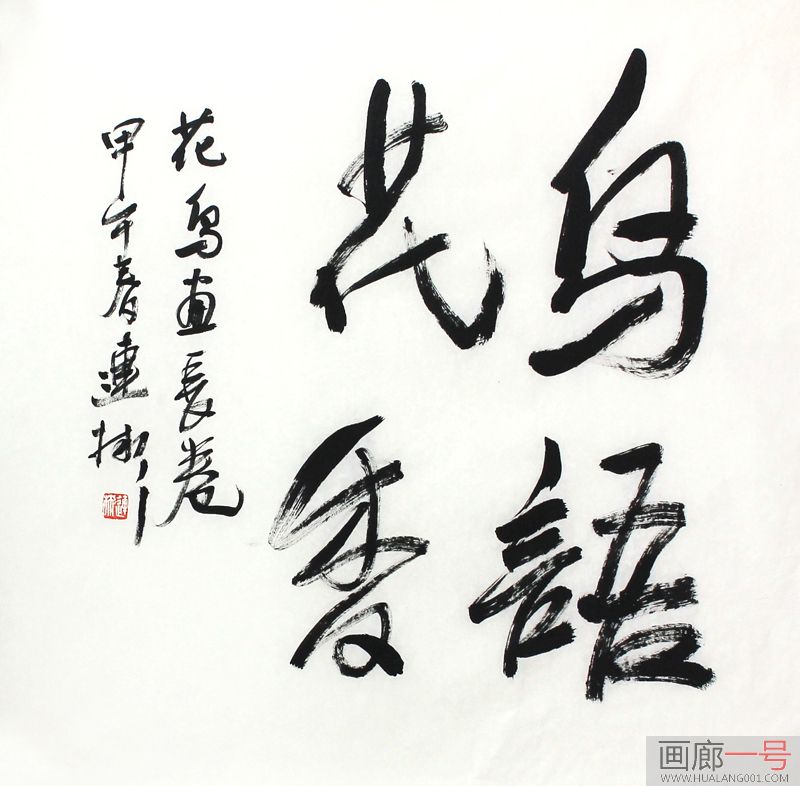 鳥語
花香
花鳥畫長卷
甲午春連
画廊一号
WWW.HUALANG001.COM